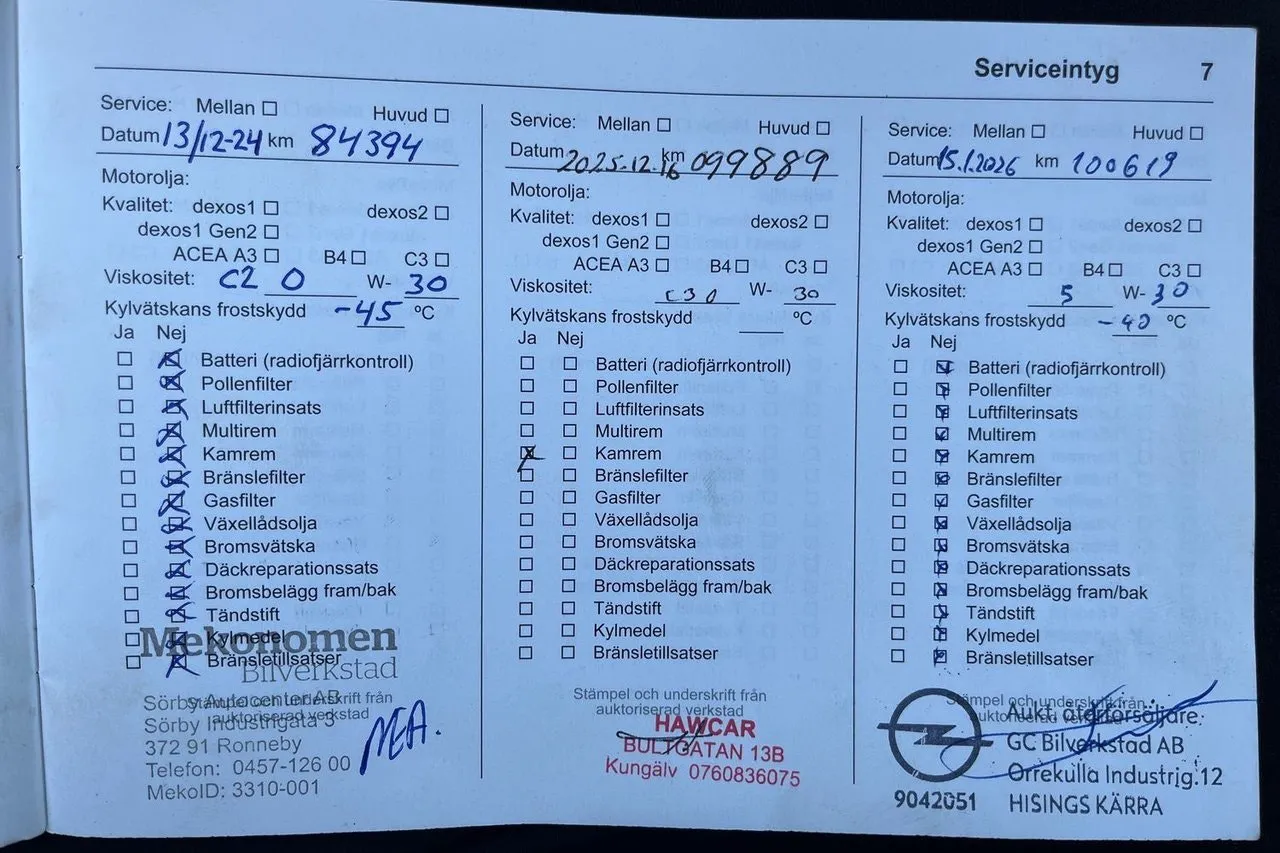 Serviceintyg 7
Service: Mellan ☐ Huvud ☐
Datum 13/12-24 km 84394
Motorolja:
Kvalitet: dexos1 ☐ dexos2 ☐
dexos1 Gen2 ☐
ACEA A3 ☐ B4 ☐ C3 ☐
Viskositet: C2 0 W- 30
Kylvätskans frostskydd -45 °C
Ja Nej
☐ ☒ Batteri (radiofjärrkontroll)
☐ ☒ Pollenfilter
☐ ☒ Luftfilterinsats
☐ ☒ Multirem
☐ ☒ Kamrem
☐ ☒ Bränslefilter
☐ ☒ Gasfilter
☐ ☒ Växellådsolja
☐ ☒ Bromsvätska
☐ ☒ Däckreparationssats
☐ ☒ Bromsbelägg fram/bak
☐ ☒ Tändstift
☐ ☒ Kylmedel
☐ ☒ Bränsletillsatser
Mekonomen
Bilverkstad
Stämpel och underskrift från
auktoriserad verkstad
Sörby Autocenter AB
Sörby Industrigata 3
372 91 Ronneby
Telefon: 0457-126 00
MekoID: 3310-001
Service: Mellan ☐ Huvud ☐
Datum 2025.12.16 km 099889
Motorolja:
Kvalitet: dexos1 ☐ dexos2 ☐
dexos1 Gen2 ☐
ACEA A3 ☐ B4 ☐ C3 ☐
Viskositet: C30 W- 30
Kylvätskans frostskydd °C
Ja Nej
☐ ☐ Batteri (radiofjärrkontroll)
☐ ☐ Pollenfilter
☐ ☐ Luftfilterinsats
☐ ☐ Multirem
☒ ☐ Kamrem
☐ ☐ Bränslefilter
☐ ☐ Gasfilter
☐ ☐ Växellådsolja
☐ ☐ Bromsvätska
☐ ☐ Däckreparationssats
☐ ☐ Bromsbelägg fram/bak
☐ ☐ Tändstift
☐ ☐ Kylmedel
☐ ☐ Bränsletillsatser
Stämpel och underskrift från
auktoriserad verkstad
HAWCAR
BULTGATAN 13B
Kungälv 0760836075
Service: Mellan ☐ Huvud ☐
Datum 15.1.2026 km 100619
Motorolja:
Kvalitet: dexos1 ☐ dexos2 ☐
dexos1 Gen2 ☐
ACEA A3 ☐ B4 ☐ C3 ☐
Viskositet: 5 W- 30
Kylvätskans frostskydd -40 °C
Ja Nej
☐ ☒ Batteri (radiofjärrkontroll)
☐ ☒ Pollenfilter
☐ ☒ Luftfilterinsats
☐ ☒ Multirem
☐ ☒ Kamrem
☐ ☒ Bränslefilter
☐ ☒ Gasfilter
☐ ☒ Växellådsolja
☐ ☒ Bromsvätska
☐ ☒ Däckreparationssats
☐ ☒ Bromsbelägg fram/bak
☐ ☒ Tändstift
☐ ☒ Kylmedel
☐ ☒ Bränsletillsatser
Stämpel och underskrift från
auktoriserad verkstad
Aukt. återförsäljare:
GC Bilverkstad AB
Orrekulla Industrig.12
9042051 HISINGS KÄRRA